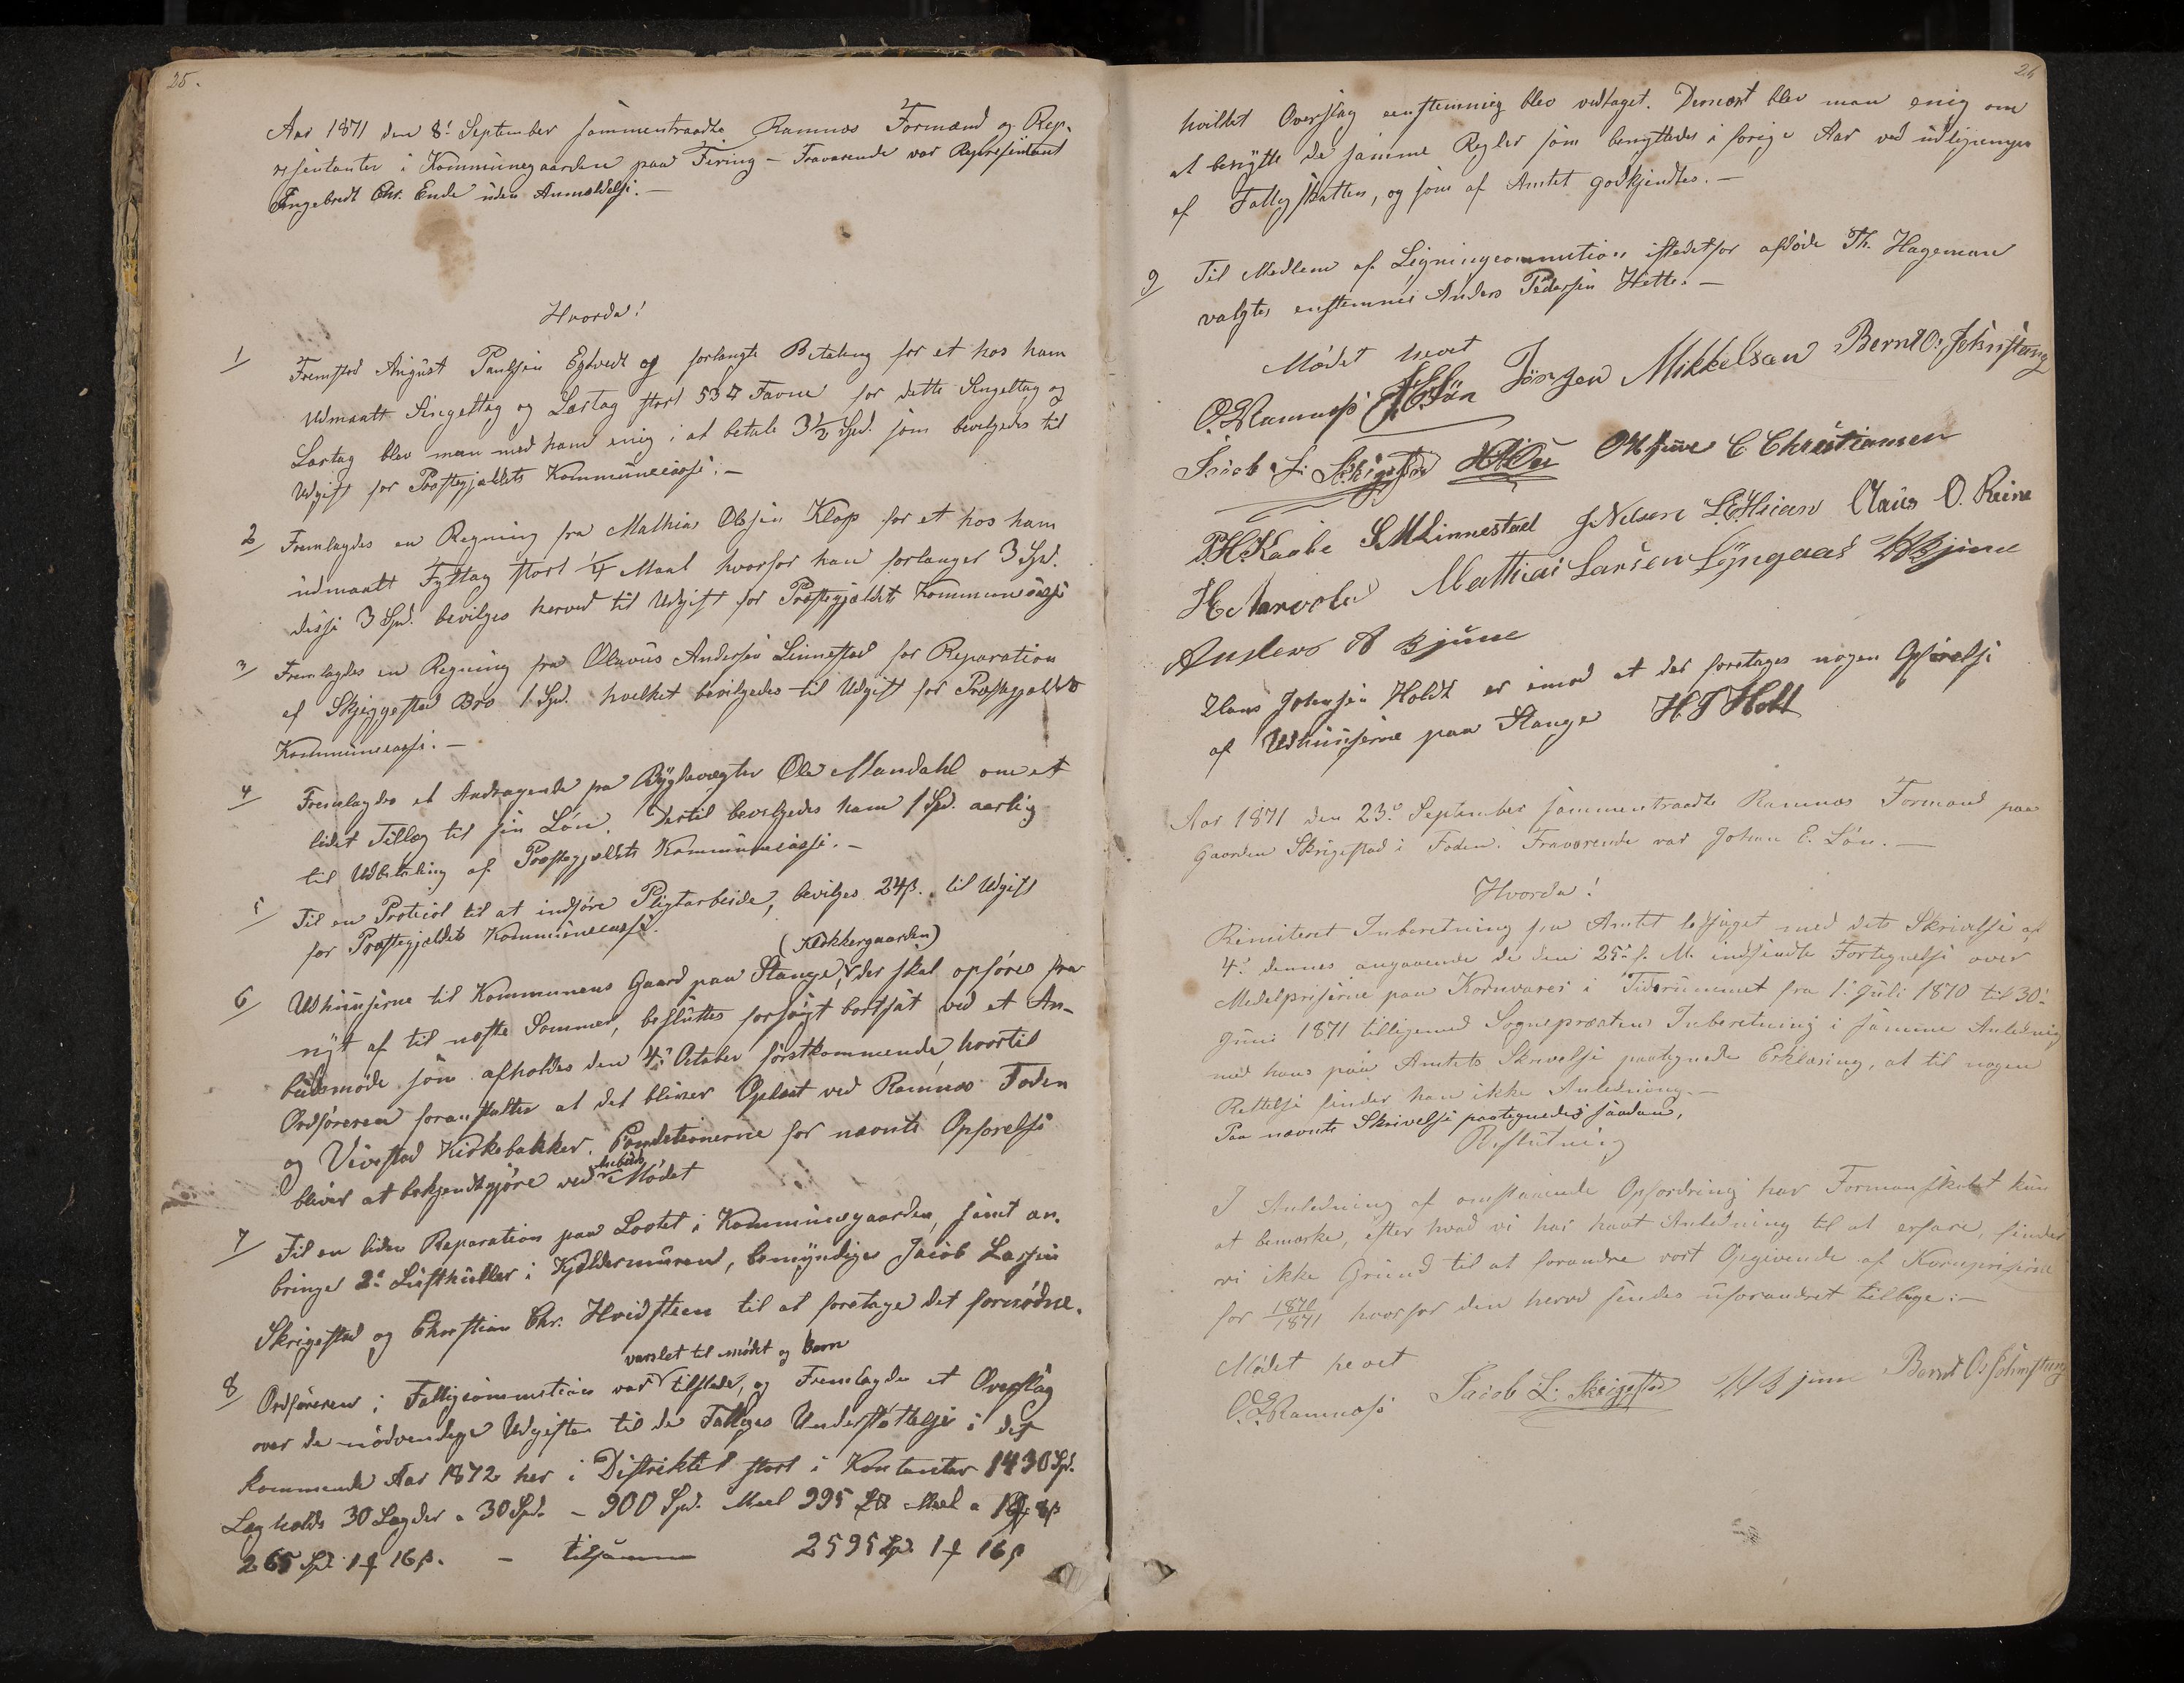 25.
Aar 1871 den 8de September sammentraadte Ramnæs Formænd og Rep-
resentanter i Kommunegaarden paa Fering - Fraværende var Representant
Engebredt Chr. Ende uden Anmeldelse. -
Hvorda!
1/ Fremstod August Paulsen Egtvedt og forlangte Betaling for et hos ham
Udmaalt Singeltag og Lastag stort 534 Favne for dette Singeltag og
Lastag blev man med ham enig i at betale 3½ Spd. som bevilgedes til
Udgift for Præstegjældets Kommunecasse. -
2/ Fremlagdes en Regning fra Mathias Olssen Klop for et hos ham
udmaalt Fyltag stort ¼ Maal hvorfor han forlanger 3 Spd.
disse 3 Spd. bevilges herved til Udgift for Præstegjældets Kommunecasse
3/ Fremlagdes en Regning fra Olavus Andersen Linnestad for Reparation
af Skjeggestad Bro 1 Spd. hvilket bevilgedes til Udgift for Præstegjældets
Kommunecasse. -
4/ Fremlagdes et Andragende fra Bygdevægter Ole Mandahl om et
lidet Tillæg til sin Løn. Dertil bevilgedes ham 1 Spd. aarlig
til Udbetaling af Præstegjældets Kommunecasse. -
5/ Til en Protocol til at indføre Pligtarbeide, bevilges 24 β. til Udgift
for Præstegjældets Kommunecasse.
(Klokkergaarden)
6/ Udhuusene til Kommunens Gaard paa Stange, der skal opføres fra
nyt af til næste Sommer, besluttes forsøgt bortsat ved et An-
budsmøde som afholdes den 4de October førstkommende, hvortil
Ordføreren foranstalter at det bliver Oplæst ved Ramnæs Foden
og Vivestad Kirkebakker. Conditionerne for nævnte Opførelse
bliver at bekjendtgjøre ved Anbuds Mødet
7/ Til en liden Reparation paa Loftet i Kommunegaarden, samt an-
bringe 2de Lufthuller i Kjeldermuren, bemyndiges Jacob Larsen
Skrigestad og Christian Chr. Hvidsteen til at foretage det fornødne.
varslet til mødet og kom
8/ Ordføreren i Fattigcommission var tilstede, og Fremlagde et Overslag
over de nødvendige Udgifter til de Fattiges Understøttelse i det
kommende Aar 1872 her i Distriktet stort i Kontanter 1430 Spd.
Læg holds 30 Lægder a 30 Spd. - 900 Spd. Meel 995 Meel a
265 Spd. 1 ƒ 16 β. - tilsammen 2595 Spd. 1 ƒ 16 β
26
hvilket Overslag eenstemmig blev vedtaget. Dernæst blev man enig om
at benytte de samme Regler som benyttedes i forige Aar ved udligningen
af Fattigskatten, og som af Amtet godkjendtes. -
9/ Til Medlem af Ligningcommution istedetfor afdøde Th. Hageman
valgtes enstemmig Anders Pedersen Hette. -
Mødet hævet
O. E. Ramnæss J. E. Løn Jørgen Mikkelsen Bernt O.
Jacob L. Skrigestad C Christiansen
P. H. Kaabe S M Linnestad J Nelsen Claus O. Reine
Mathias Larsen Lÿngaas
Anders A Bjune
Hans Johnsen Holdt er imod at der foretages nogen Opførelse
af Udhuuserne paa Stange H. J Holt
Aar 1871 den 23de September sammentraadte Ramnæs Formænd paa
Gaarden Skrigestad i Foden. Fraværende var Johan E. Løn. -
Hvorda!
Remiteret Inberetning fra Amtet ledsaget med dets Skrivelse af
4de dennes angaaende de den 25de f. M. indsendte Fortegnelse over
Medelpriserne paa Kornvarer i Tidsrummet fra 1ste Juli 1870 til 30te
Juni 1871 tilligemed Sognepræsten Inberetning i samme Anledning
med hans paa Amtets Skrivelse paategnede Erklæring, at til nogen
Rettelse finder han ikke Anledning. -
Paa nævnte Skrivelse paategnedes saadan,
Beslutning
I Anledning af omstaaende Opfordring har Formanskabet kun
at bemærke, efter hvad vi har havt Anledning til at erfare, finder
vi ikke Grund til at forandre vort Opgivende af Kornpriserne
for 1870/1871 hvorfor den herved sendes uforandret tilbage. -
Mødet hevet
O. E. Ramnæss Jacob L. Skrigestad Bernt O.